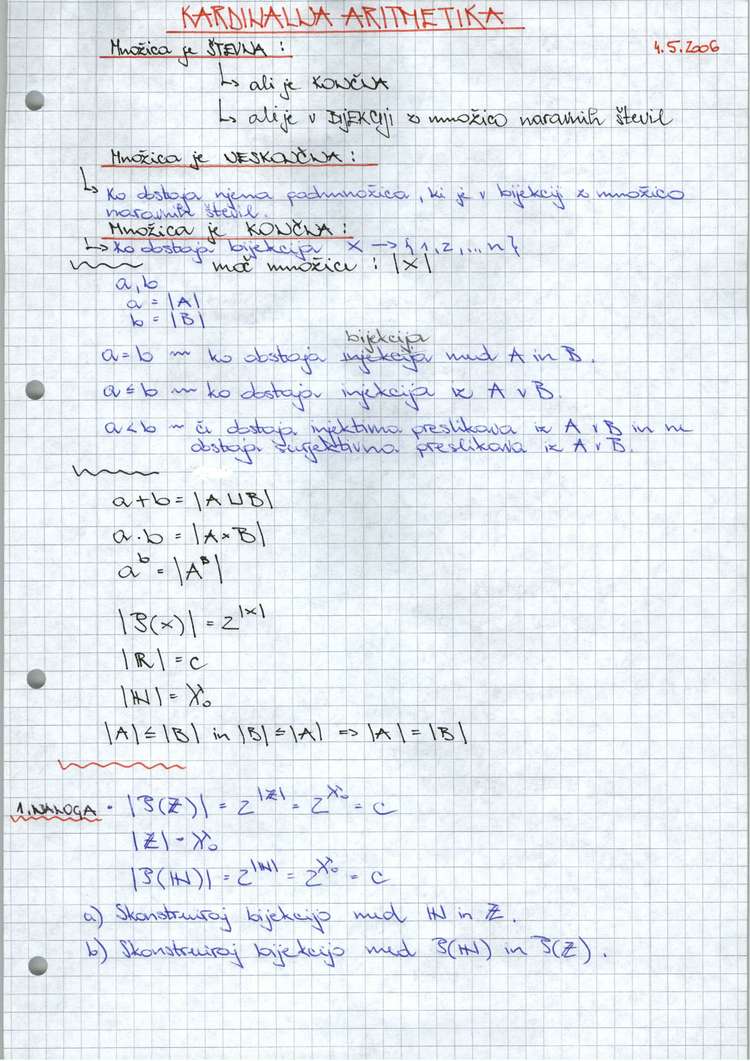 KARDINALNA ARITMETIKA
4.5.2006
Množica je ŠTEVNA :
↳ ali je KONČNA
↳ ali je v BIJEKCIJI z množico naravnih števil
Množica je NESKONČNA :
↳ Ko obstaja njena podmnožica, ki je v bijekcij z množico
naravnih števil.
Množica je KONČNA :
↳ Ko obstaja bijekcija X → {1,2,...n}
moč množice : |X|
a,b
a = |A|
b = |B|
bijekcija
a=b ~ ko obstaja injekcija med A in B.
a≤b ~ ko obstaja injekcija iz A v B.
a<b ~ če obstaja injektivna preslikava iz A v B in ne
obstaja surjektivna preslikava iz A v B.
a+b = |A⊔B|
a·b = |A×B|
a^b = |A^B|
|P(x)| = 2^|x|
|ℝ| = c
|ℕ| = ℵ₀
|A| ≤ |B| in |B| ≤ |A| => |A| = |B|
1. NALOGA · |P(ℤ)| = 2^|ℤ| = 2^ℵ₀ = c
|ℤ| = ℵ₀
|P(ℕ)| = 2^|ℕ| = 2^ℵ₀ = c
a) Skonstruiraj bijekcijo med ℕ in ℤ.
b) Skonstruiraj bijekcijo med P(ℕ) in P(ℤ).